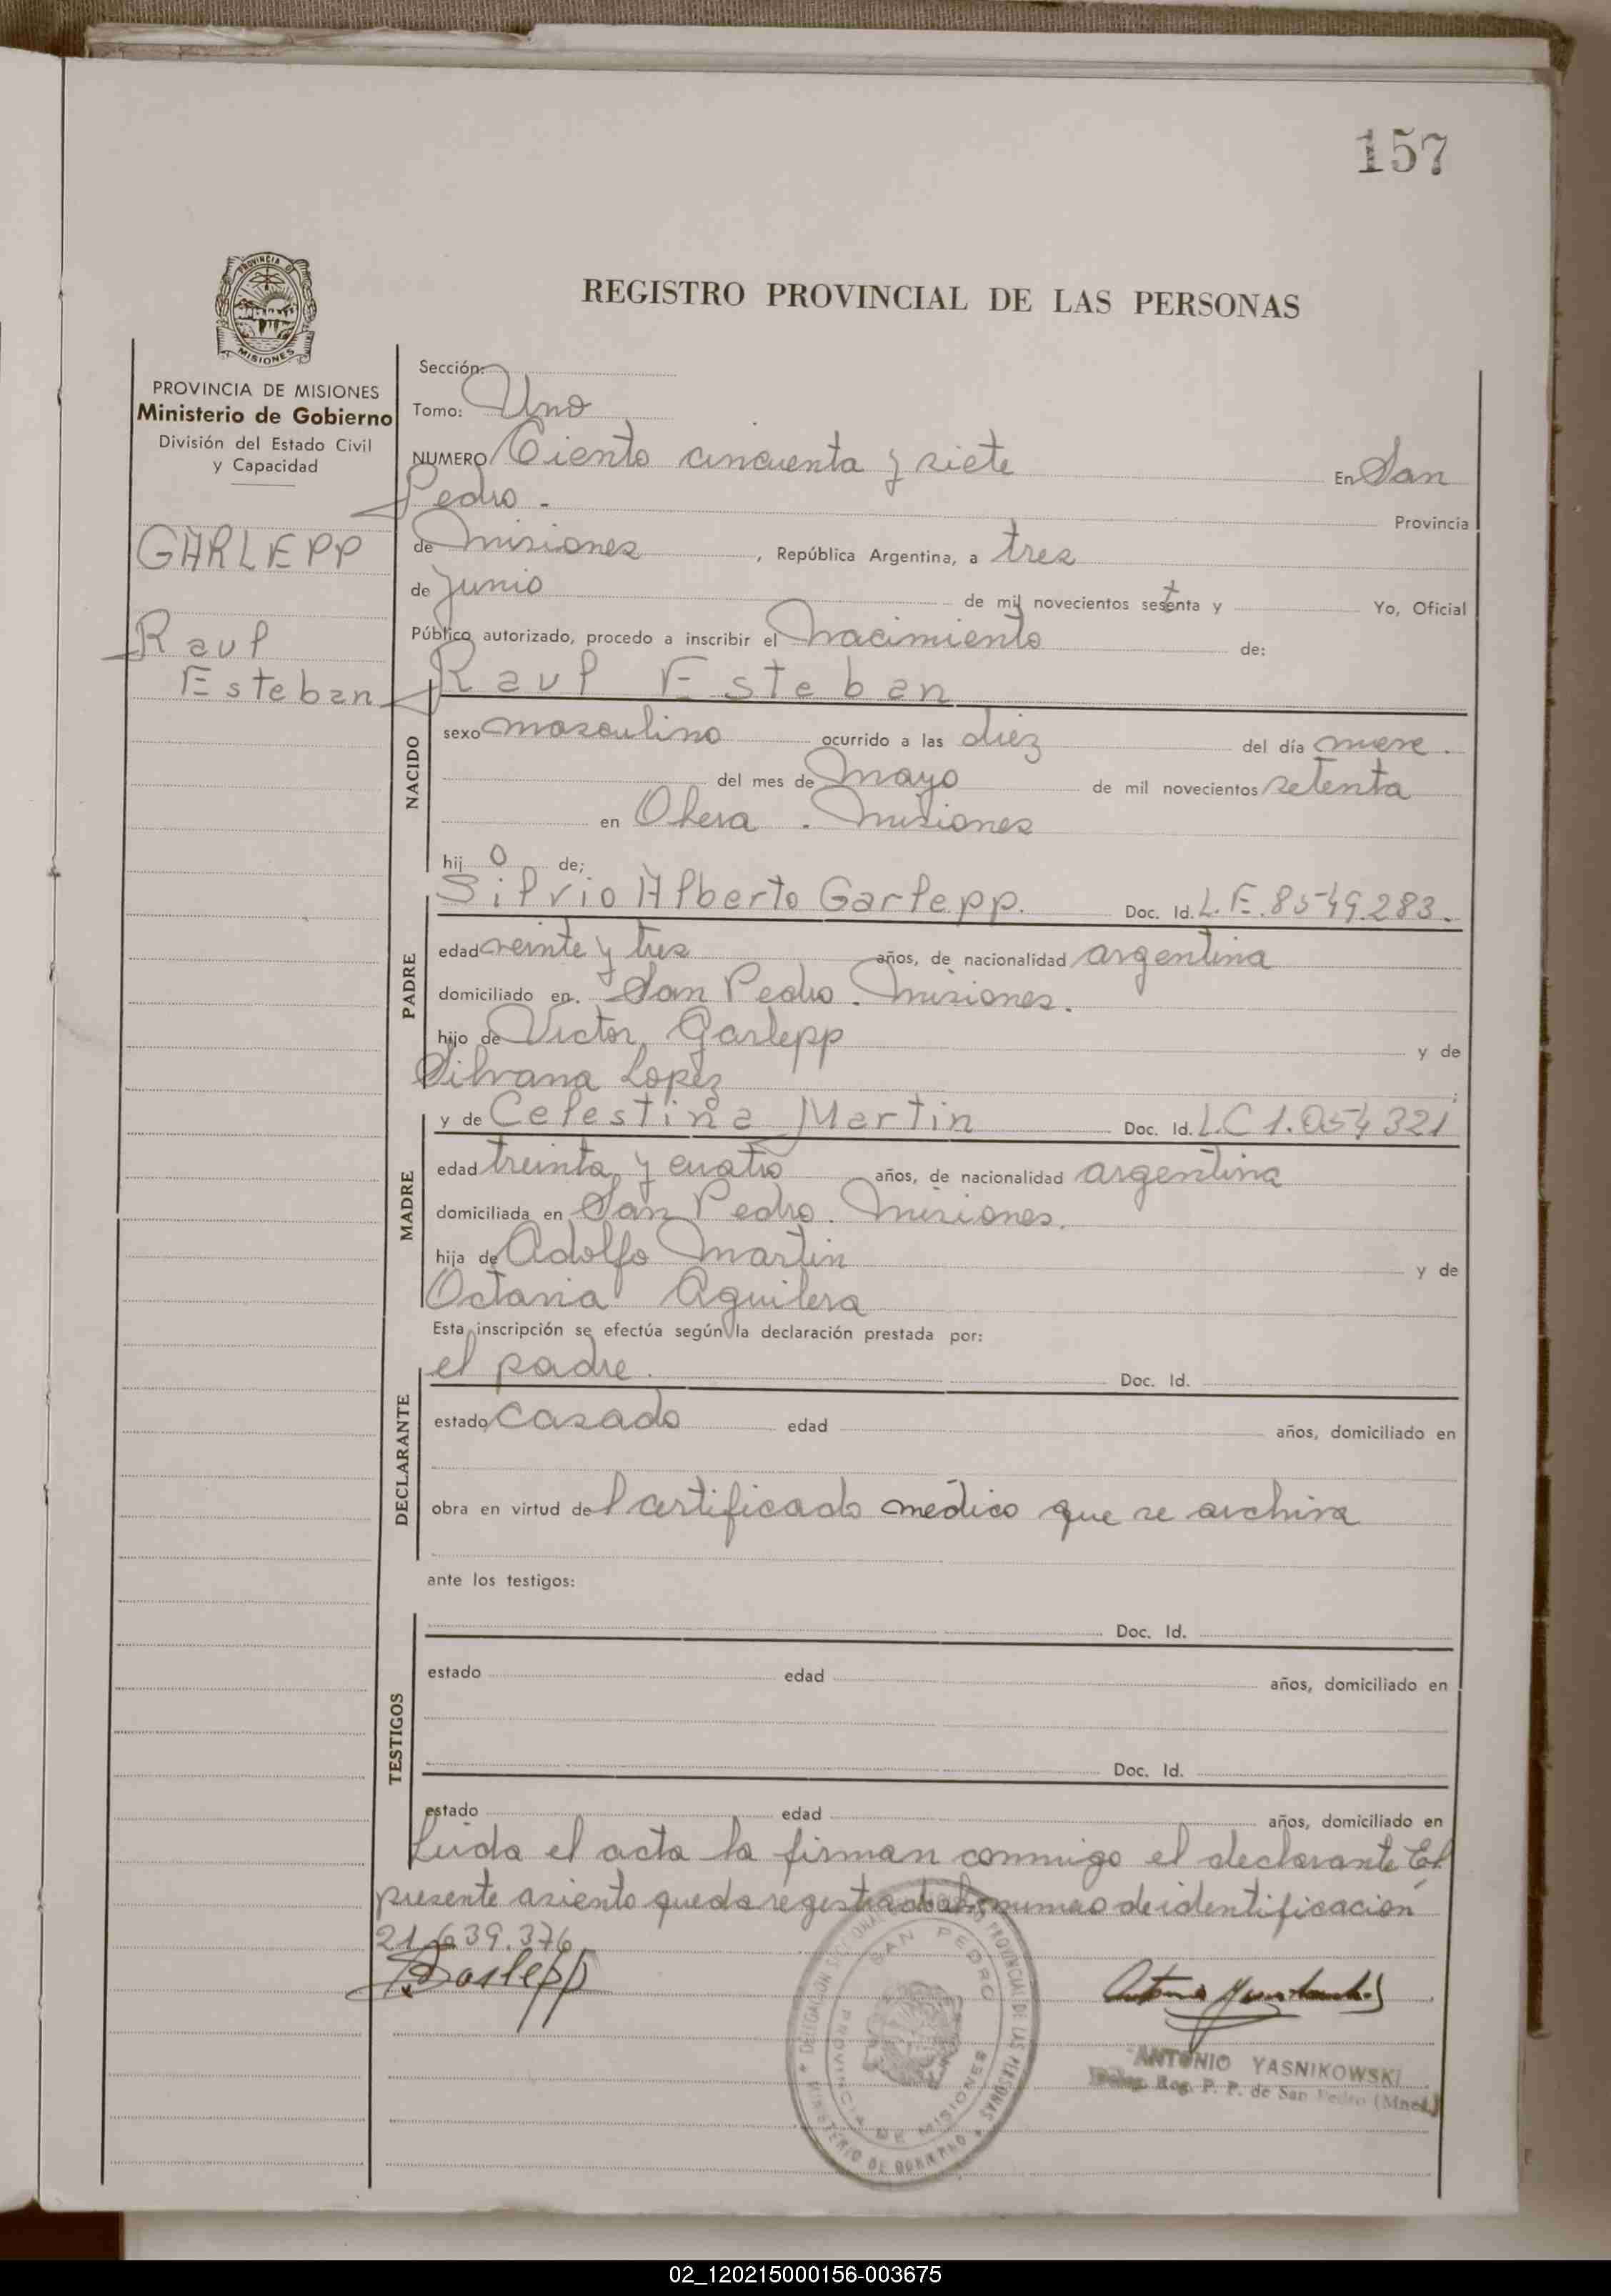 157
PROVINCIA DE
MISIONES
REGISTRO PROVINCIAL DE LAS PERSONAS
PROVINCIA DE MISIONES
Ministerio de Gobierno
División del Estado Civil
y Capacidad
GARLEPP
Raul
Esteban
Sección:
Tomo: Uno
NUMERO Ciento cincuenta y siete En San
Pedro - Provincia
de Misiones , República Argentina, a tres
de junio de mil novecientos setenta y Yo, Oficial
Público autorizado, procedo a inscribir el Nacimiento de:
Raul Esteban
NACIDO
sexo masculino ocurrido a las diez del día nueve.
del mes de Mayo de mil novecientos setenta
en Obera . Misiones
hij o de;
PADRE
Silvio Alberto Garlepp. Doc. Id. L.E. 8549.283.
edad veinte y tres años, de nacionalidad argentina
domiciliado en. San Pedro. Misiones.
hijo de Victor Garlepp y de
Silvana Lopez
MADRE
y de Celestina Martin Doc. Id. L.C 1.054321
edad treinta y cuatro años, de nacionalidad argentina
domiciliada en San Pedro. Misiones.
hija de Adolfo Martin y de
Octavia Aguilera
Esta inscripción se efectúa según la declaración prestada por:
DECLARANTE
el padre. Doc. Id.
estado casado edad años, domiciliado en
obra en virtud del certificado médico que se archiva
ante los testigos:
TESTIGOS
Doc. Id.
estado edad años, domiciliado en
Doc. Id.
estado edad años, domiciliado en
Leida el acta la firman conmigo el declarante El
presente asiento queda registrado numero de identificación
21.639.376
Garlepp
DELEGACION SECCIONAL PROVINCIAL DE LAS PERSONAS
MINISTERIO DE GOBIERNO
SAN PEDRO
PROVINCIA DE MISIONES
ANTONIO YASNIKOWSKI
Deleg. Reg. P. P. de San Pedro (Mnes.)
02_120215000156-003675